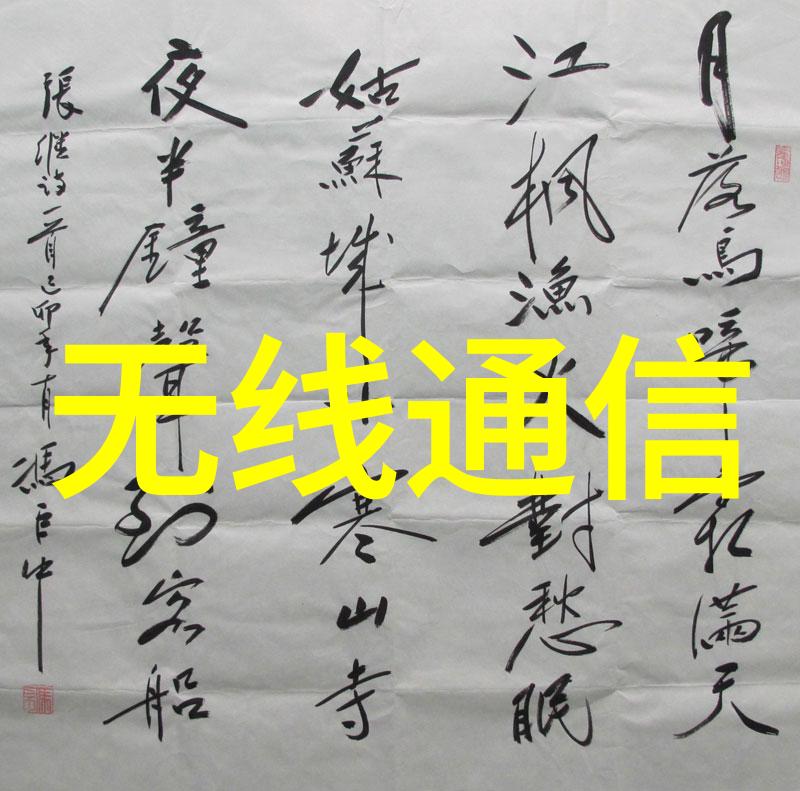 月落烏啼霜滿天
江楓漁火對愁眠
姑蘇城外寒山寺
夜半鐘聲到客船
張继诗一首己卯年首馮巨中
无线通信